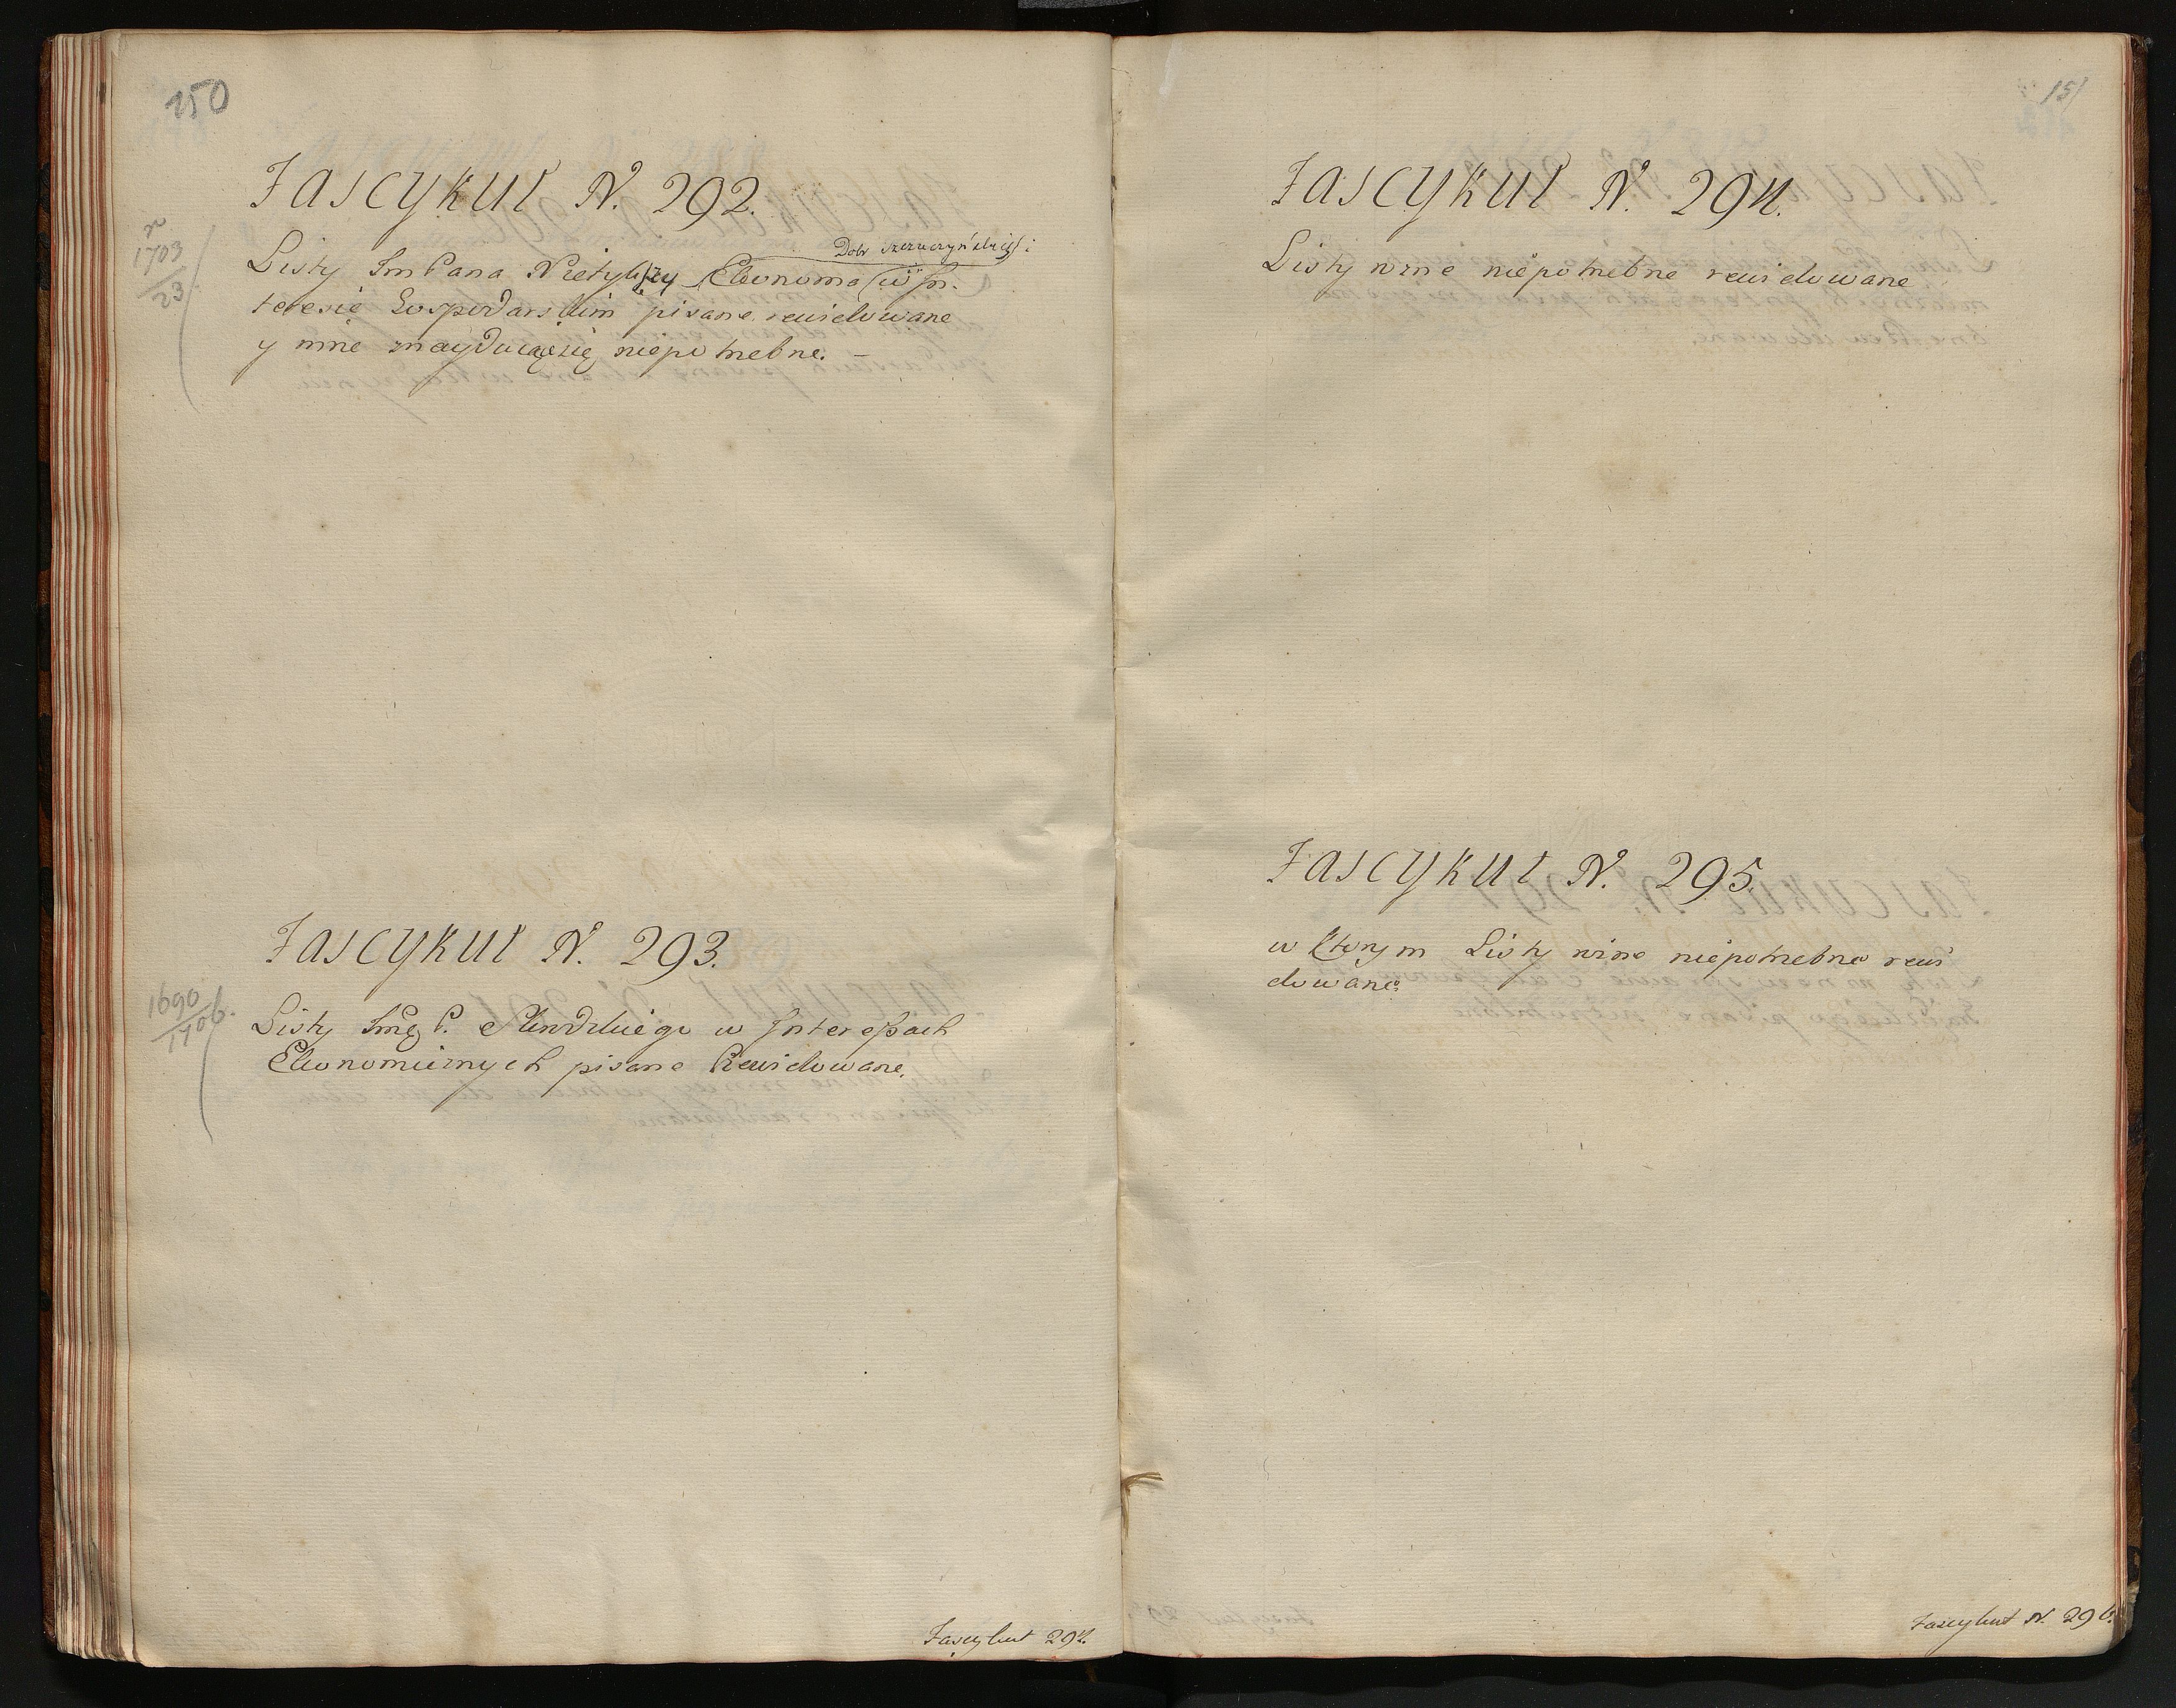 150
Fascykuł N. 292.
r
1703
23
Dobr
Listy Im Pana Ekonoma w In-
teresie Gospodarskim pisane rewidowane
y inne znayduiącesię niepotrzebne. -
Fascykuł N. 293.
1690
1706.
Listy Imę P. w Interessach
Ekonomicznych pisane Rewidowane.
Fascykuł 294.
151
Fascykuł N. 294.
Listy rożne niepotrzebne rewidowane
Fascykuł N. 295.
w ktorym Listy rożne niepotrzebne rewi
dowane
Fascykuł N. 296.